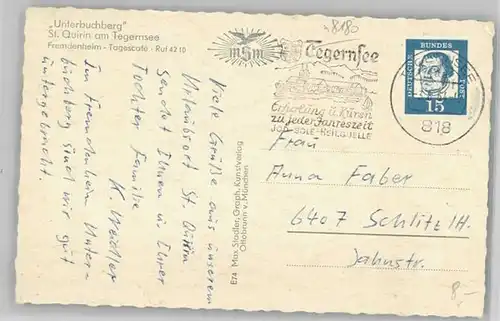 "Unterbuchberg"
St. Quirin am Tegernsee
Fremdenheim - Tagescafé · Ruf 4210
Viele Grüße aus unserem
Urlaubsort St. Quirin
Sendet Ihnen u. Ihrer
Tochter Familie
K. 
Im Fremdenheim Untern
buchberg sind wir gut
untergebracht.
E74 Max Stadler, Graph. Kunstverlag
Ottobrunn v. München
8180
mSm
Tegernsee
Erholung u. Kuren
zu jeder Jahreszeit
JOD-SOLE-HEILQUELLE
DEUTSCHE
BUNDES
POST
15
818
Frau
Anna Faber
6407 Schlitz/H.
Jahnstr.
8.-